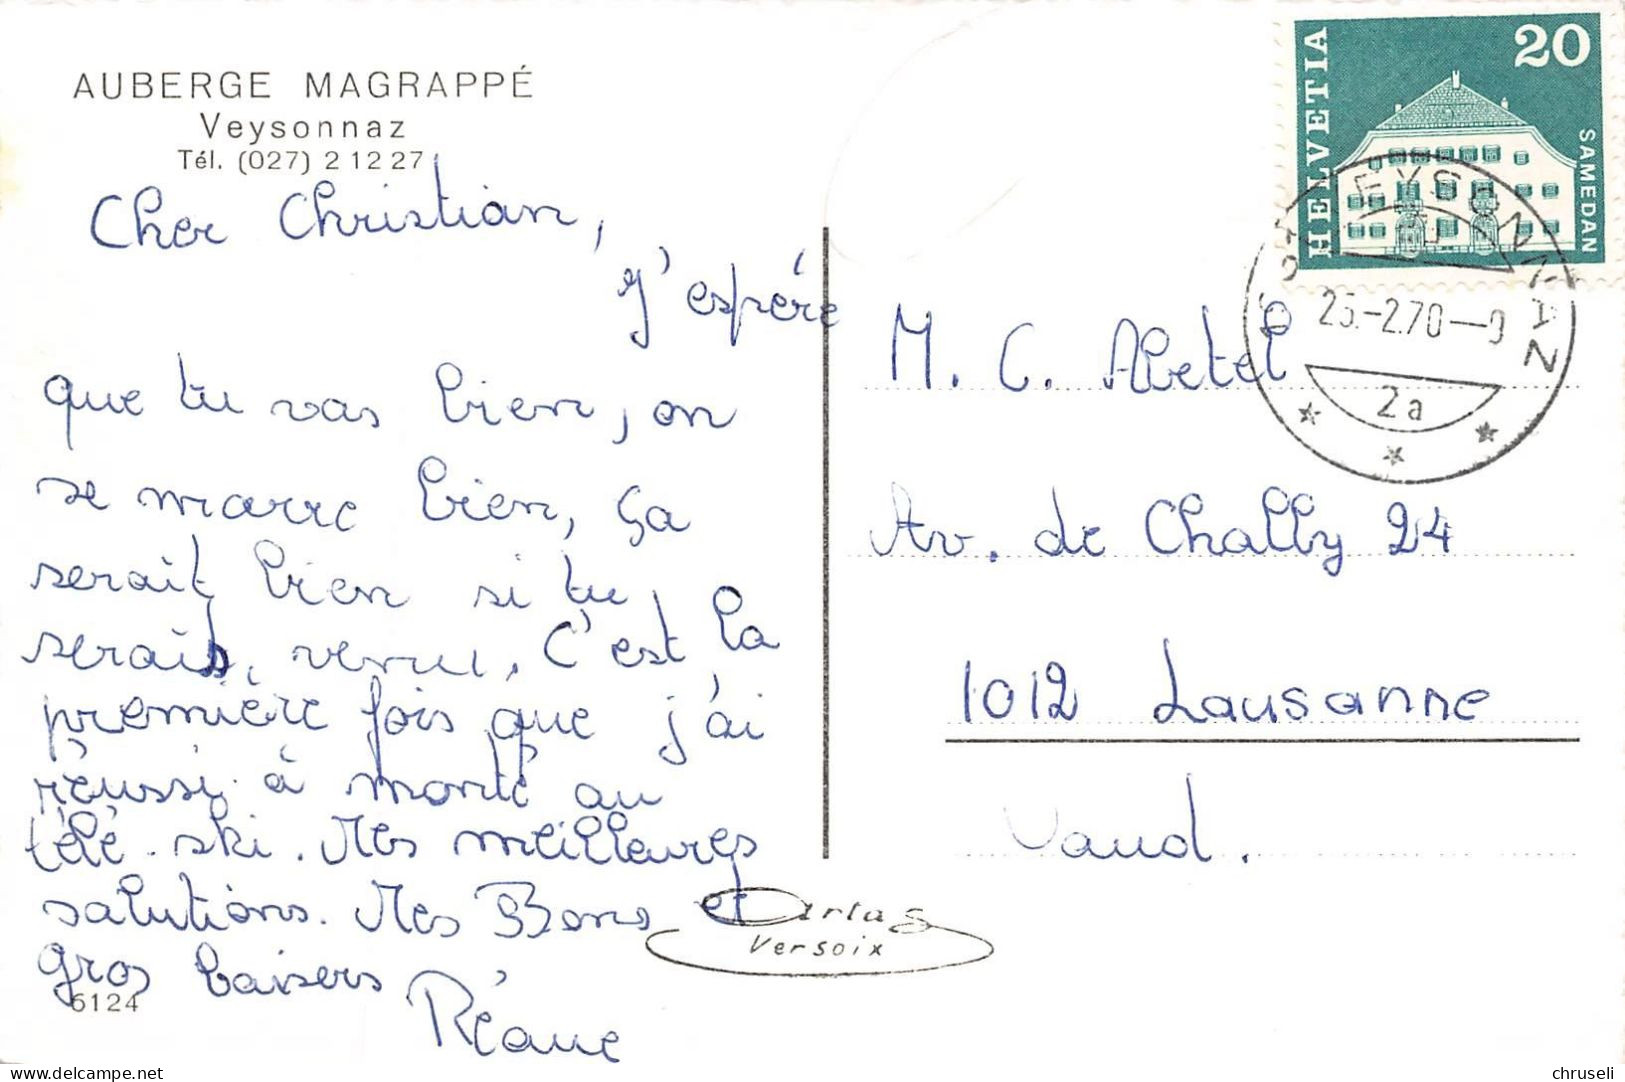 AUBERGE MAGRAPPÉ
Veysonnaz
Tél. (027) 2 12 27
Cher Christian,
J'espére
que tu vas bien, on
se marre bien, ça
serait bien si tu
serais venu. C'est la
première fois que j'ai
réussi à monté au
télé-ski. Mes meilleures
salutions. Mes Bons et
gros baisers
6124
Cartas
Versoix
HELVETIA
20
SAMEDAN
VEYSONNAZ
-2.70
2a
M. C. Abetel
Av. de Chailly 24
1012 Lausanne
Vaud.